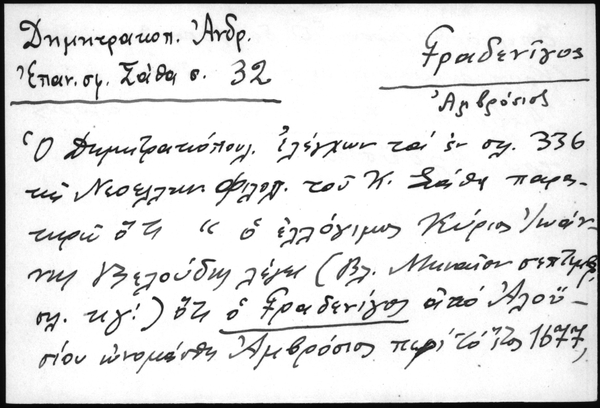 Δημητρακοπ. Ἀνδρ.
Ἐπαν. σφ. Σάθα σ. 32
Γραδενῖγος
Ἀμβρόσιος
Ὁ Δημητρακόπουλ. ἐλέγχων τά ἐν σελ. 336
τῆς Νεοελλην. Φιλολ. τοῦ Κ. Σάθα παρα-
τηρεῖ ὅτι “ ὁ ἐλλόγιμος Κύριος Ἰωάν-
νης Βελούδης λέγει (Βλ. Μηναῖον σεπτεμβ.
σελ. κγ΄.) ὅτι ὁ Γραδενῖγος ἀπό Ἀλοϋ-
σίου ὠνομάσθη Ἀμβρόσιος περί τό ἔτος 1677,